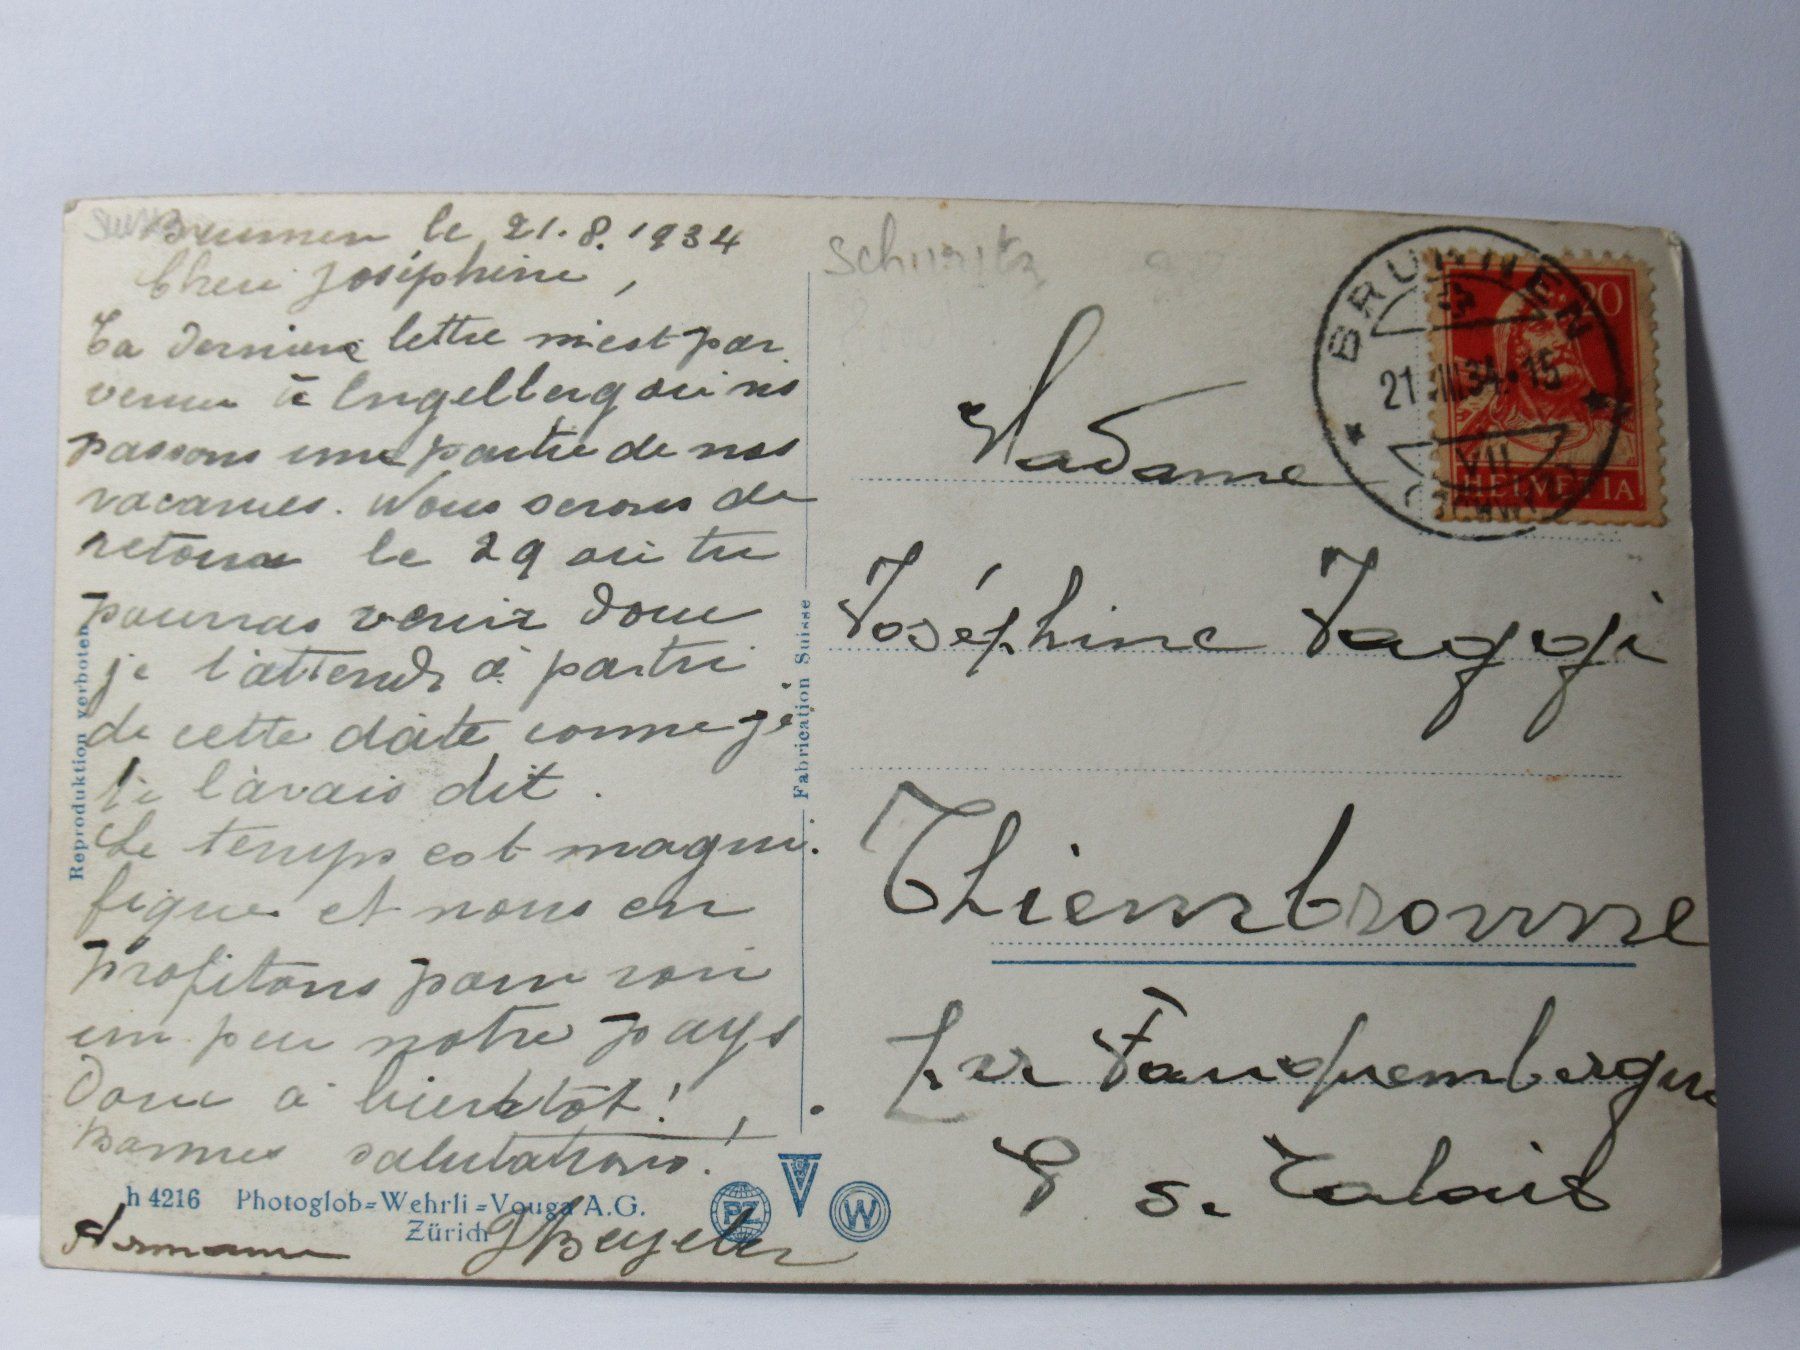 Brunnen le 21.8.1934
Chere Joséphine,
Ta derniere lettre m'est par
venue à Engelberg ou ns
passons une partie de nos
vacances. Nous serons de
retour le 29 ou tu
pourras venir donc
je t'attends à partir
de cette date comme je
te l'avais dit.
Le temps est magni.
fique et nous en
profitons pour voir
un peu notre pays
Donc à bientôt!
Bonnes salutations!
JBeyeler
Reproduktion verboten
h 4216 Photoglob=Wehrli=Vouga A.G.
Zürich
PZ
V
W
Fabrication Suisse
Schwitz
BRUNNEN
21.VIII.34-15
20
HELVETIA
Madame
Joséphine Jaggi
Thiembronne
par Fauquembergue
P s. Calais